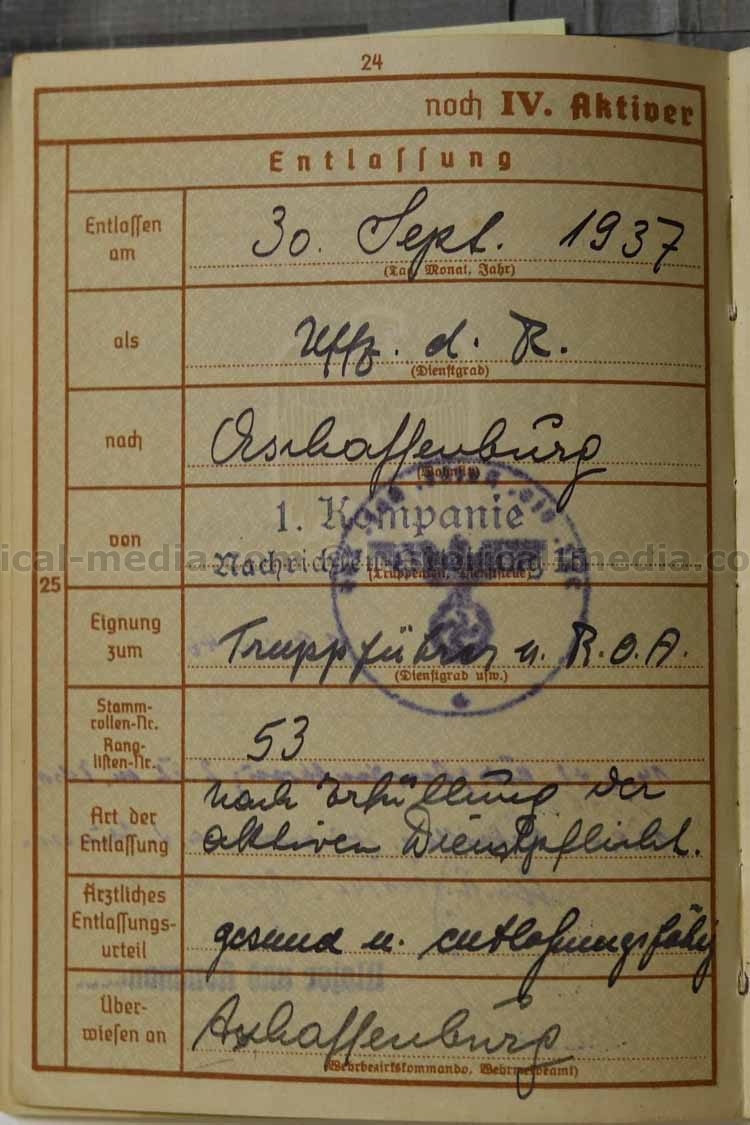 24
noch IV. Aktiver
Entlassung
Entlassen am
30. Sept. 1937
(Tag, Monat, Jahr)
als
Uffz. d. R.
(Dienstgrad)
nach
Aschaffenburg
(Wohnsitz)
25
von
1. Kompanie
Nachrichten 15
ical-media.com
media.co
(Truppenteil, Dienststelle)
Eignung zum
Truppführer u. R.O.A.
(Dienstgrad usw.)
Stamm-
rollen-Nr.
Rang-
listen-Nr.
53
Art der
Entlassung
nach Erfüllung der
aktiven Dienstpflicht.
Ärztliches
Entlassungs-
urteil
gesund u. entlaßungsfähig
Über-
wiesen an
Aschaffenburg
(Wehrbezirkskommando, Wehrmeldeamt)